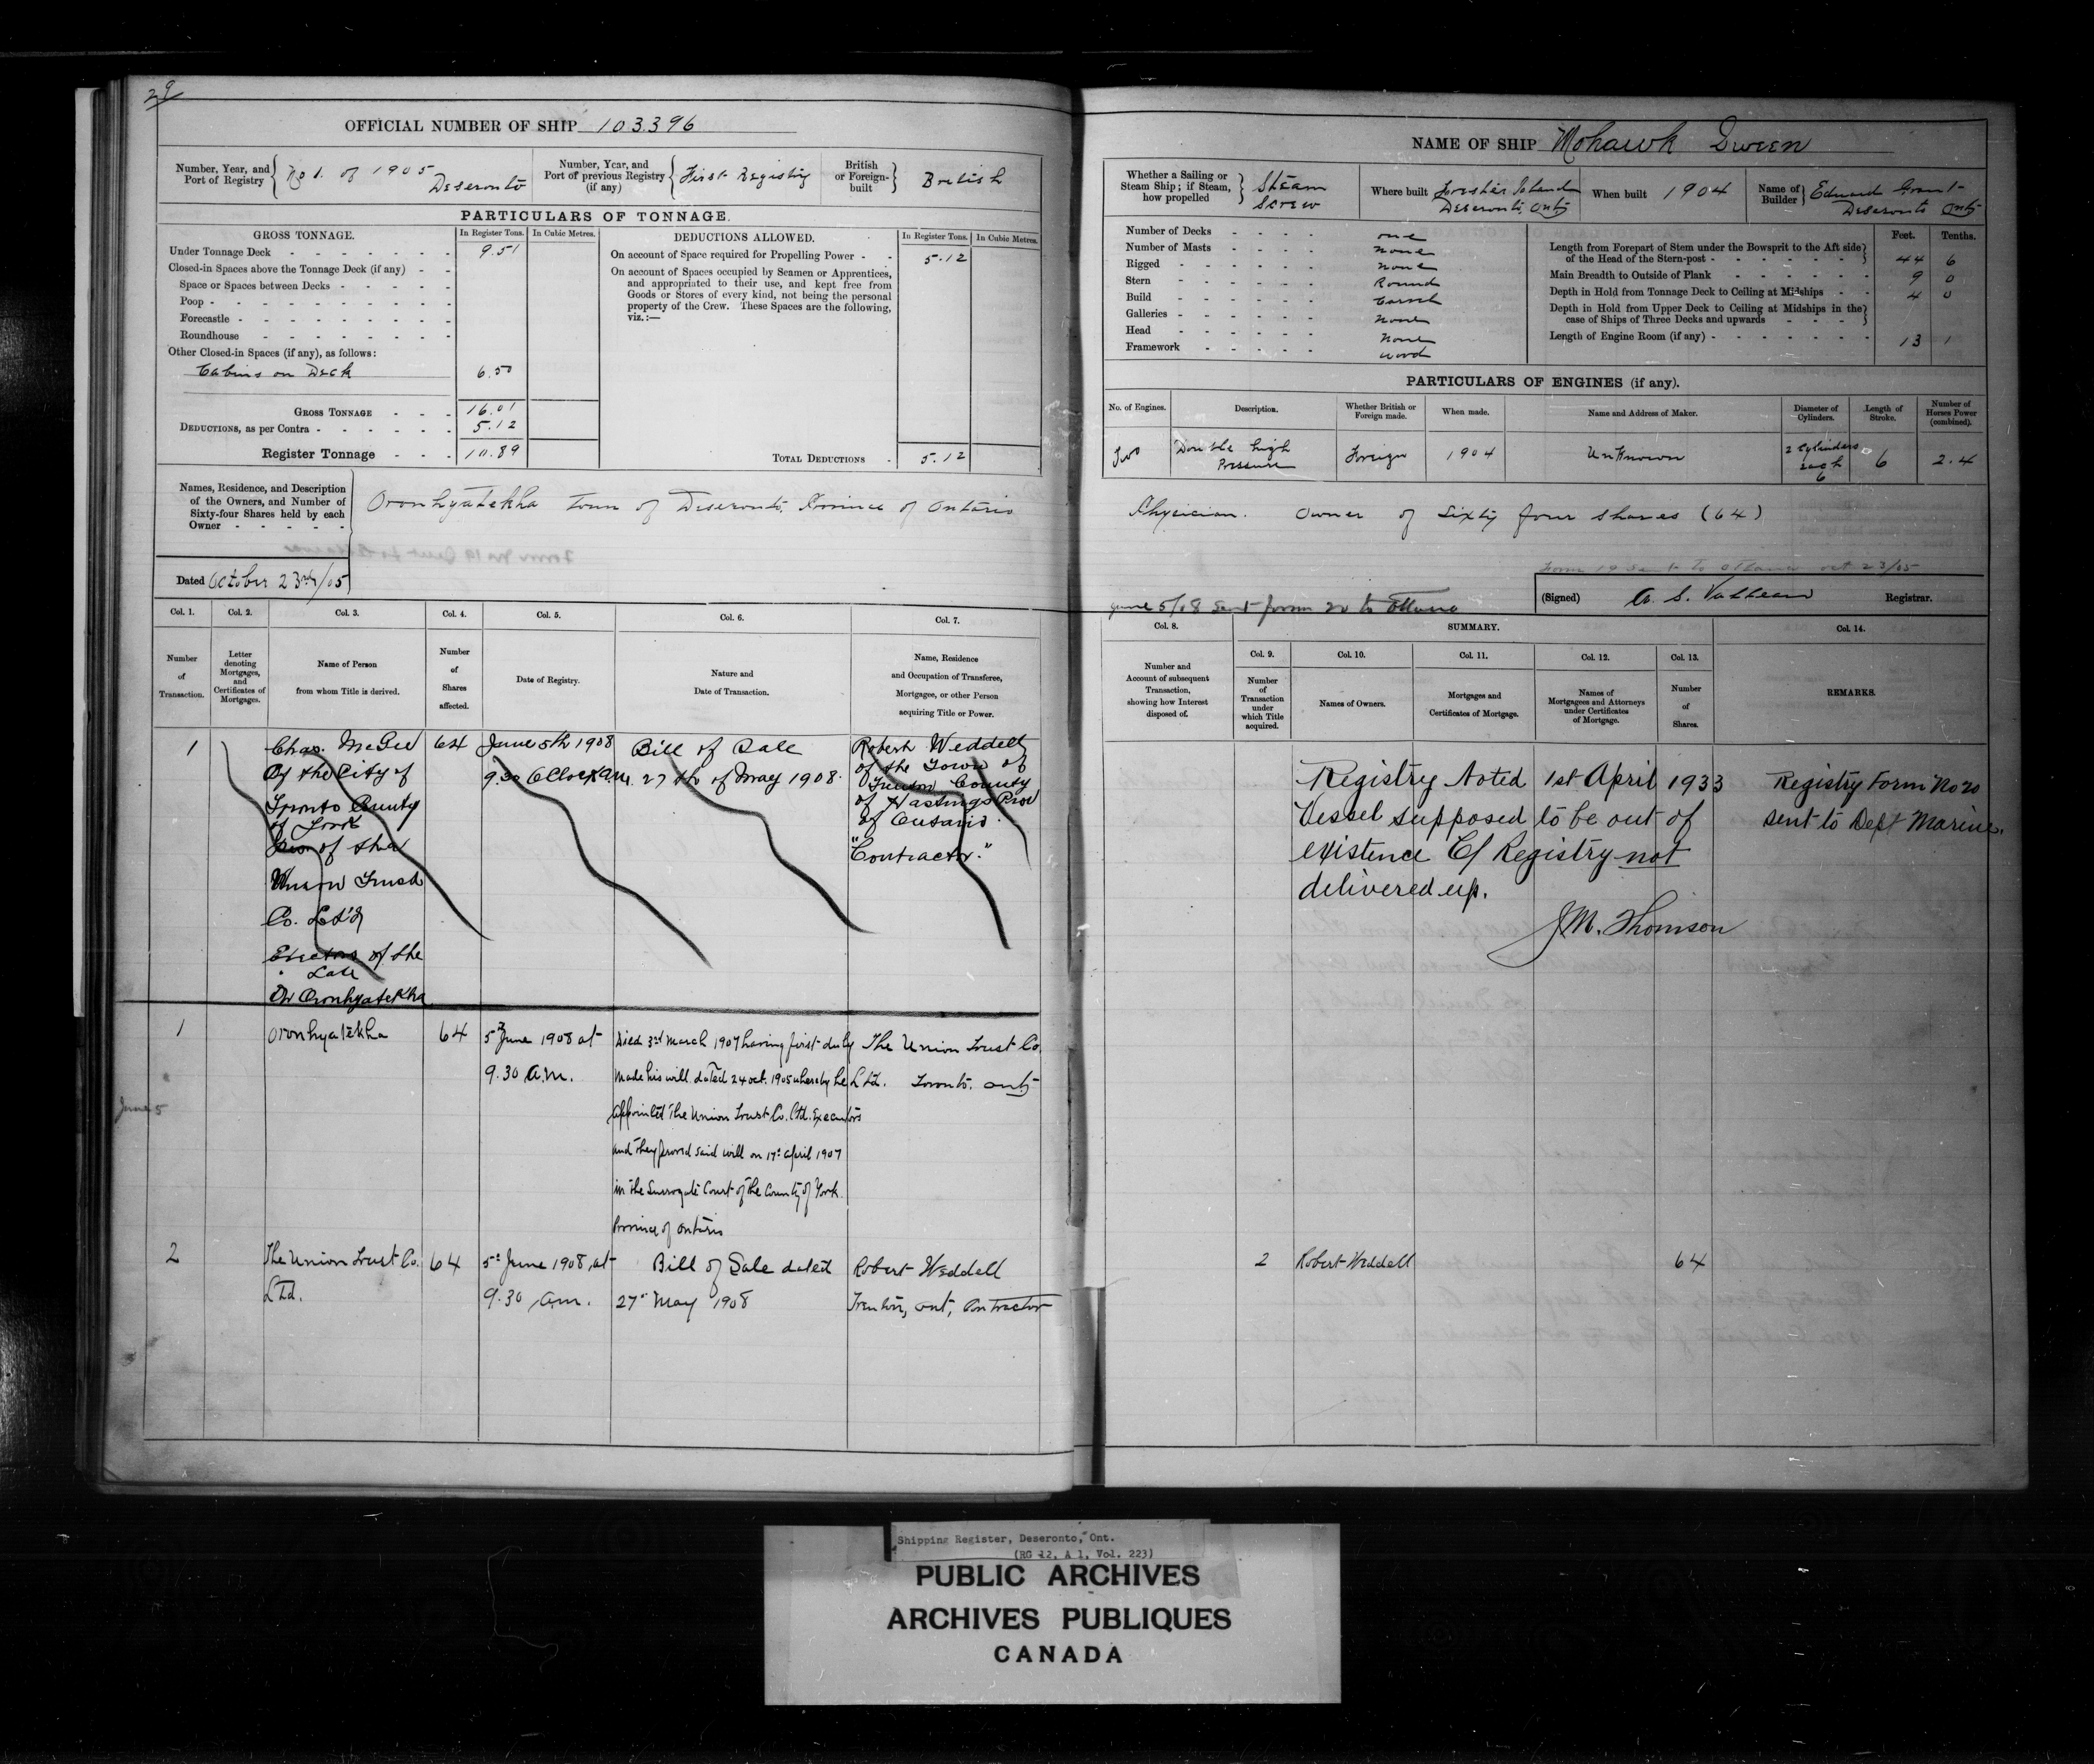 29
OFFICIAL NUMBER OF SHIP 103396
Number, Year, and Port of Registry No 1. of 1905 Deseronto
Number, Year, and Port of previous Registry (if any) First Registry
British or Foreign-built British
PARTICULARS OF TONNAGE.
GROSS TONNAGE. In Register Tons. In Cubic Metres.
Under Tonnage Deck 9.51
Closed-in Spaces above the Tonnage Deck (if any)
Space or Spaces between Decks
Poop
Forecastle
Roundhouse
Other Closed-in Spaces (if any), as follows:
Cabins on Deck 6.50
GROSS TONNAGE 16.01
DEDUCTIONS, as per Contra 5.12
Register Tonnage 10.89
DEDUCTIONS ALLOWED. In Register Tons. In Cubic Metres.
On account of Space required for Propelling Power 5.12
On account of Spaces occupied by Seamen or Apprentices,
and appropriated to their use, and kept free from
Goods or Stores of every kind, not being the personal
property of the Crew. These Spaces are the following,
viz.:—
TOTAL DEDUCTIONS 5.12
Names, Residence, and Description
of the Owners, and Number of
Sixty-four Shares held by each
Owner
Oronhyatekha Town of Deseronto, Province of Ontario
Dated October 23rd/05
Col. 1. Col. 2. Col. 3. Col. 4. Col. 5. Col. 6. Col. 7.
Number of Transaction.
Letter denoting Mortgages, and Certificates of Mortgages.
Name of Person from whom Title is derived.
Number of Shares affected.
Date of Registry.
Nature and Date of Transaction.
Name, Residence and Occupation of Transferee, Mortgagee, or other Person acquiring Title or Power.
1
Chas. McGee
Of the City of
Toronto County
of York
of the
Union Trust
Co. Lt'd
of the
Late
Dr Oronhyatekha
64
June 5th 1908
9.30 OClock am.
Bill of Sale
27th of May 1908.
Robert Weddell
of the Town of
Trenton County
of Hastings Prov
of Ontario.
"Contractor."
1
Oronhyatekha
64
5th June 1908 at
9.30 a.m.
Died 3rd March 1907 having first duly
made his will dated 24 oct. 1905 whereby he
appointed The Union Trust Co. Ltd. Executors
and they proved said will on 17th april 1907
in the Surrogate Court of the County of York
Province of Ontario
The Union Trust Co.
Ltd. Toronto. Ont
June 5
2
The Union Trust Co.
Ltd.
64
5th June 1908, at
9.30 a.m.
Bill of Sale dated
27th May 1908
Robert Weddell
Trenton, Ont, Contractor
NAME OF SHIP Mohawk Queen
Whether a Sailing or Steam Ship; if Steam, how propelled Steam Screw
Where built Forester Island Deseronto, Ont
When built 1904
Name of Builder Edward Grant Deseronto Ont
Number of Decks one
Number of Masts none
Rigged none
Stern Round
Build Carvel
Galleries none
Head none
Framework wood
Feet. Tenths.
Length from Forepart of Stem under the Bowsprit to the Aft side
of the Head of the Stern-post 44 6
Main Breadth to Outside of Plank 9 0
Depth in Hold from Tonnage Deck to Ceiling at Midships 4 0
Depth in Hold from Upper Deck to Ceiling at Midships in the
case of Ships of Three Decks and upwards
Length of Engine Room (if any) 13 1
PARTICULARS OF ENGINES (if any).
No. of Engines. Description. Whether British or Foreign made. When made. Name and Address of Maker. Diameter of Cylinders. Length of Stroke. Number of Horses Power (combined).
Two Double high Pressure Foreign 1904 Unknown 2 Cylinders each 6 6 2.4
Physician. Owner of Sixty four shares (64)
Form 19 sent to Ottawa oct 23/05
June 5/08 sent form 20 to Ottawa
(Signed) Registrar.
Col. 8. SUMMARY. Col. 14.
Col. 9. Col. 10. Col. 11. Col. 12. Col. 13.
Number and Account of subsequent Transaction, showing how Interest disposed of.
Number of Transaction under which Title acquired.
Names of Owners.
Mortgages and Certificates of Mortgage.
Names of Mortgagees and Attorneys under Certificates of Mortgage.
Number of Shares.
REMARKS.
Registry Noted 1st April 1933
Vessel supposed to be out of
existence C/ Registry not
delivered up.
J M. Thomson
Registry Form No 20
sent to Dept Marine.
2 Robert Weddell 64
Shipping Register, Deseronto, Ont.
(RG 12, A 1, Vol. 223)
PUBLIC ARCHIVES
ARCHIVES PUBLIQUES
CANADA